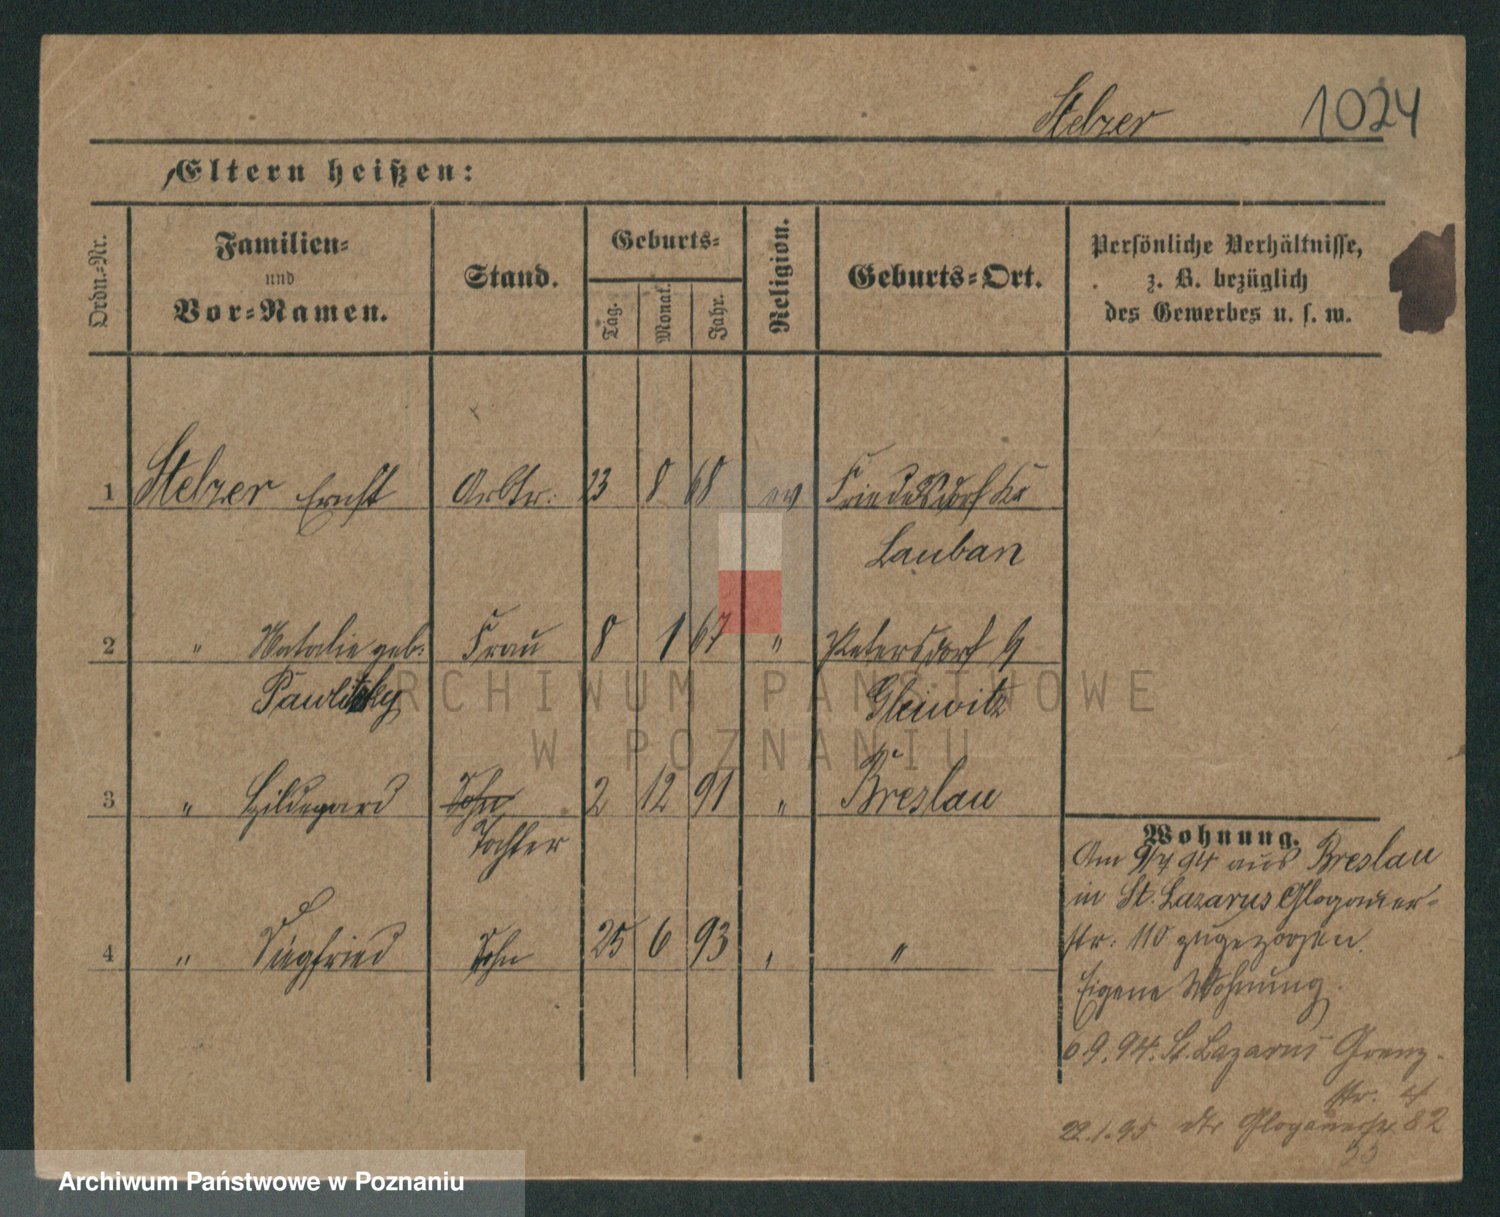 Stelzer 1024
Eltern heißen:
Ordn.-Nr. Familien- und Vor-Namen. Stand. Geburts- Tag. Monat. Jahr. Religion. Geburts-Ort. Persönliche Verhältnisse, z. B. bezüglich des Gewerbes u. s. w.
1 Stelzer Ernst Arbtr. 23 8 68 ev Friedersdorf Kr
Lauban
2 " Natalie geb. Frau 8 1 67 " Petersdorf
Pawlitzky Gleiwitz
3 " Hildegard Sohn 2 12 91 " Breslau
Tochter
4 " Siegfried Sohn 25 6 93 " "
Wohnung.
Am 9/7 94 aus Breslau
in St. Lazarus Glogauer-
str. 110 zugezogen.
Eigene Wohnung.
6.9.94. St. Lazarus Grenz-
str. 4
22.1.95 Glogauerstr. 82
ARCHIWUM PAŃSTWOWE
W POZNANIU
Archiwum Państwowe w Poznaniu